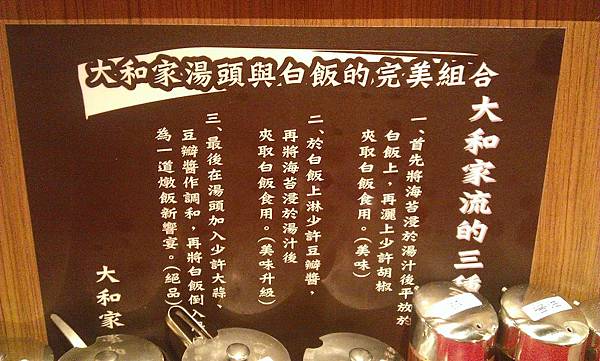 大和家湯頭與白飯的完美組合
大和家流的三種
一、首先將海苔浸於湯汁後平放於
白飯上，再灑上少許胡椒
夾取白飯食用。（美味）
二、於白飯上淋少許豆瓣醬，
再將海苔浸於湯汁後
夾取白飯食用。（美味升級）
三、最後在湯頭加入少許大蒜、
豆瓣醬作調和，再將白飯倒入
為一道燉飯新饗宴。（絕品）
大和家